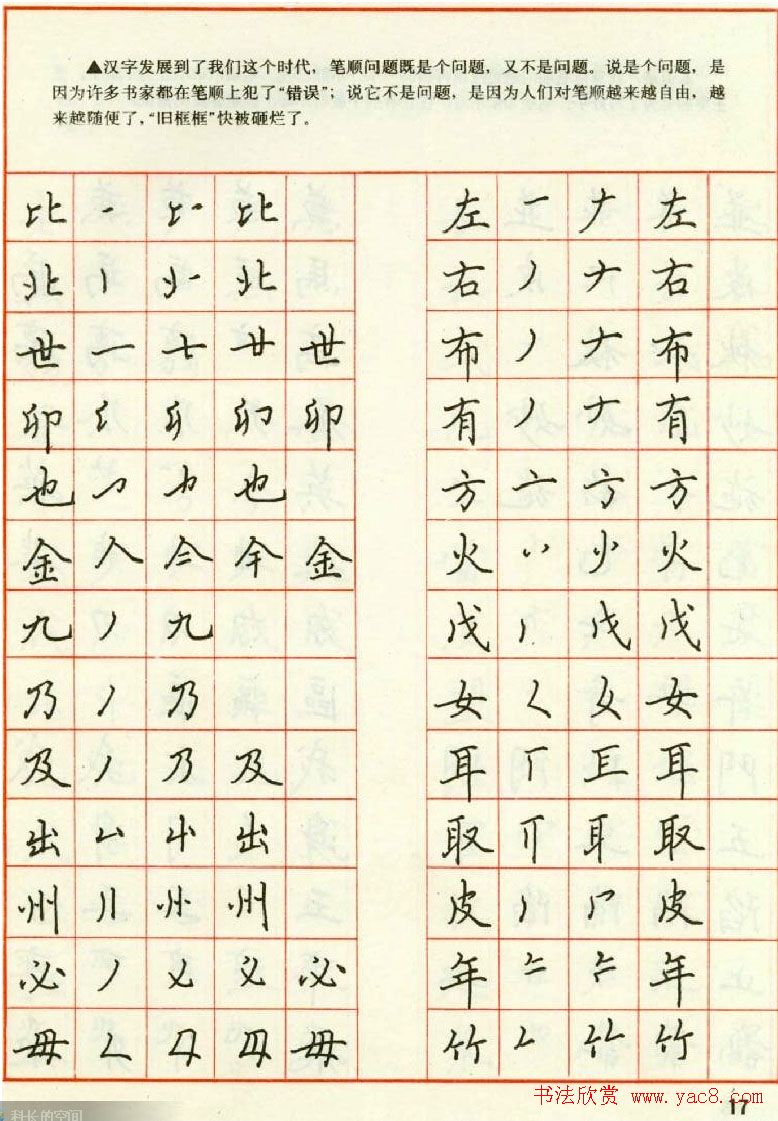 ▲汉字发展到了我们这个时代，笔顺问题既是个问题，又不是问题。说是个问题，是
因为许多书家都在笔顺上犯了“错误”；说它不是问题，是因为人们对笔顺越来越自由，越
来越随便了，“旧框框”快被砸烂了。
比 比
北 北
世 一 七 廿 世
卯 卯
也 也
金 人 亼 金
九 丿 九
乃 丿 乃
及 丿 乃 及
出 屮 出
州 州
必 丿 必
毋 毋
左 一 𠂇 左
右 丿 𠂇 右
布 丿 𠂇 布
有 丿 𠂇 有
方 亠 方 方
火 火
戊 丿 戊 戊
女 𡿨 女
耳 丅 耳
取 耳 取
皮 丿 皮
年 年
竹 𠂉 竹 竹
书法欣赏 www.yac8.com
17
科长的空间